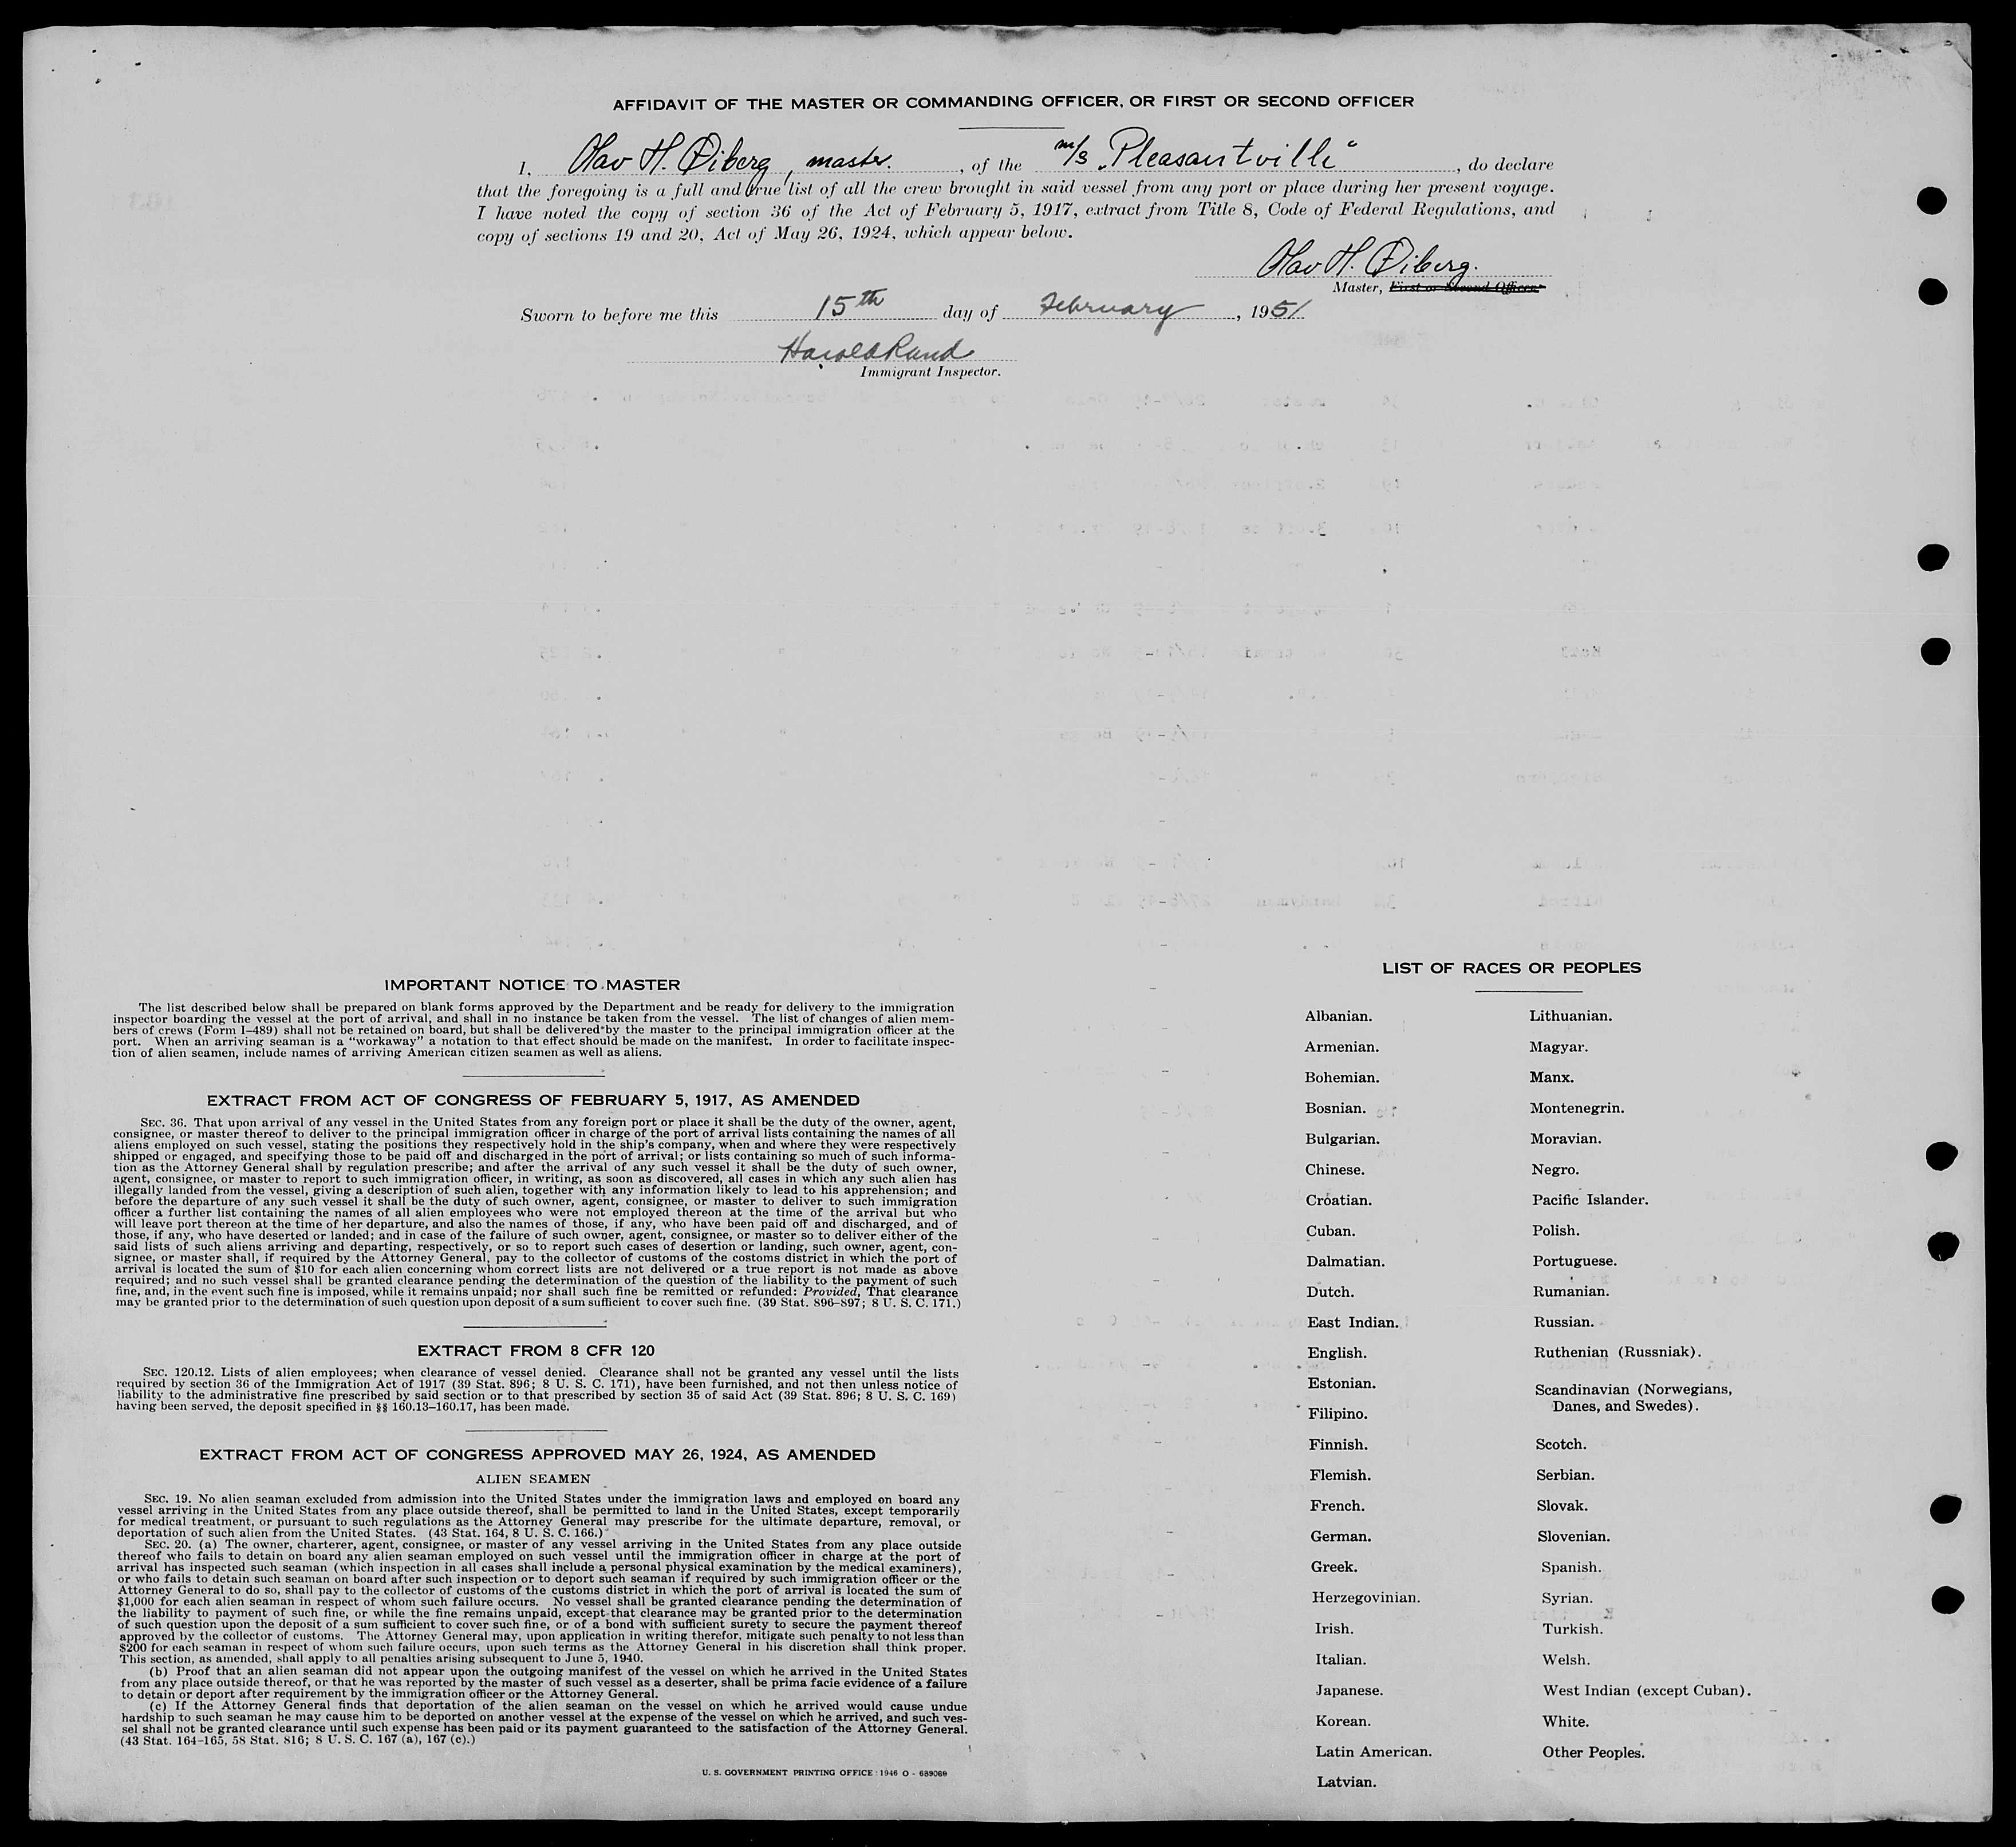 AFFIDAVIT OF THE MASTER OR COMMANDING OFFICER, OR FIRST OR SECOND OFFICER
I, Olav H. Øiberg, master. , of the m/s „Pleasantville“ , do declare
that the foregoing is a full and true list of all the crew brought in said vessel from any port or place during her present voyage.
I have noted the copy of section 36 of the Act of February 5, 1917, extract from Title 8, Code of Federal Regulations, and
copy of sections 19 and 20, Act of May 26, 1924, which appear below.
Olav H. Øiberg.
Master, First or Second Officer
Sworn to before me this 15th day of February , 1951
Harold Rand
Immigrant Inspector.
IMPORTANT NOTICE TO MASTER
The list described below shall be prepared on blank forms approved by the Department and be ready for delivery to the immigration
inspector boarding the vessel at the port of arrival, and shall in no instance be taken from the vessel. The list of changes of alien mem-
bers of crews (Form I–489) shall not be retained on board, but shall be delivered by the master to the principal immigration officer at the
port. When an arriving seaman is a “workaway” a notation to that effect should be made on the manifest. In order to facilitate inspec-
tion of alien seamen, include names of arriving American citizen seamen as well as aliens.
EXTRACT FROM ACT OF CONGRESS OF FEBRUARY 5, 1917, AS AMENDED
SEC. 36. That upon arrival of any vessel in the United States from any foreign port or place it shall be the duty of the owner, agent,
consignee, or master thereof to deliver to the principal immigration officer in charge of the port of arrival lists containing the names of all
aliens employed on such vessel, stating the positions they respectively hold in the ship's company, when and where they were respectively
shipped or engaged, and specifying those to be paid off and discharged in the port of arrival; or lists containing so much of such informa-
tion as the Attorney General shall by regulation prescribe; and after the arrival of any such vessel it shall be the duty of such owner,
agent, consignee, or master to report to such immigration officer, in writing, as soon as discovered, all cases in which any such alien has
illegally landed from the vessel, giving a description of such alien, together with any information likely to lead to his apprehension; and
before the departure of any such vessel it shall be the duty of such owner, agent, consignee, or master to deliver to such immigration
officer a further list containing the names of all alien employees who were not employed thereon at the time of the arrival but who
will leave port thereon at the time of her departure, and also the names of those, if any, who have been paid off and discharged, and of
those, if any, who have deserted or landed; and in case of the failure of such owner, agent, consignee, or master so to deliver either of the
said lists of such aliens arriving and departing, respectively, or so to report such cases of desertion or landing, such owner, agent, con-
signee, or master shall, if required by the Attorney General, pay to the collector of customs of the costoms district in which the port of
arrival is located the sum of $10 for each alien concerning whom correct lists are not delivered or a true report is not made as above
required; and no such vessel shall be granted clearance pending the determination of the question of the liability to the payment of such
fine, and, in the event such fine is imposed, while it remains unpaid; nor shall such fine be remitted or refunded: Provided, That clearance
may be granted prior to the determination of such question upon deposit of a sum sufficient to cover such fine. (39 Stat. 896–897; 8 U. S. C. 171.)
EXTRACT FROM 8 CFR 120
SEC. 120.12. Lists of alien employees; when clearance of vessel denied. Clearance shall not be granted any vessel until the lists
required by section 36 of the Immigration Act of 1917 (39 Stat. 896; 8 U. S. C. 171), have been furnished, and not then unless notice of
liability to the administrative fine prescribed by said section or to that prescribed by section 35 of said Act (39 Stat. 896; 8 U. S. C. 169)
having been served, the deposit specified in §§ 160.13–160.17, has been made.
EXTRACT FROM ACT OF CONGRESS APPROVED MAY 26, 1924, AS AMENDED
ALIEN SEAMEN
SEC. 19. No alien seaman excluded from admission into the United States under the immigration laws and employed on board any
vessel arriving in the United States from any place outside thereof, shall be permitted to land in the United States, except temporarily
for medical treatment, or pursuant to such regulations as the Attorney General may prescribe for the ultimate departure, removal, or
deportation of such alien from the United States. (43 Stat. 164, 8 U. S. C. 166.)
SEC. 20. (a) The owner, charterer, agent, consignee, or master of any vessel arriving in the United States from any place outside
thereof who fails to detain on board any alien seaman employed on such vessel until the immigration officer in charge at the port of
arrival has inspected such seaman (which inspection in all cases shall include a personal physical examination by the medical examiners),
or who fails to detain such seaman on board after such inspection or to deport such seaman if required by such immigration officer or the
Attorney General to do so, shall pay to the collector of customs of the customs district in which the port of arrival is located the sum of
$1,000 for each alien seaman in respect of whom such failure occurs. No vessel shall be granted clearance pending the determination of
the liability to payment of such fine, or while the fine remains unpaid, except that clearance may be granted prior to the determination
of such question upon the deposit of a sum sufficient to cover such fine, or of a bond with sufficient surety to secure the payment thereof
approved by the collector of customs. The Attorney General may, upon application in writing therefor, mitigate such penalty to not less than
$200 for each seaman in respect of whom such failure occurs, upon such terms as the Attorney General in his discretion shall think proper.
This section, as amended, shall apply to all penalties arising subsequent to June 5, 1940.
(b) Proof that an alien seaman did not appear upon the outgoing manifest of the vessel on which he arrived in the United States
from any place outside thereof, or that he was reported by the master of such vessel as a deserter, shall be prima facie evidence of a failure
to detain or deport after requirement by the immigration officer or the Attorney General.
(c) If the Attorney General finds that deportation of the alien seaman on the vessel on which he arrived would cause undue
hardship to such seaman he may cause him to be deported on another vessel at the expense of the vessel on which he arrived, and such ves-
sel shall not be granted clearance until such expense has been paid or its payment guaranteed to the satisfaction of the Attorney General.
(43 Stat. 164–165, 58 Stat. 816; 8 U. S. C. 167 (a), 167 (c).)
U. S. GOVERNMENT PRINTING OFFICE : 1946 O - 689069
LIST OF RACES OR PEOPLES
Albanian.
Armenian.
Bohemian.
Bosnian.
Bulgarian.
Chinese.
Croatian.
Cuban.
Dalmatian.
Dutch.
East Indian.
English.
Estonian.
Filipino.
Finnish.
Flemish.
French.
German.
Greek.
Herzegovinian.
Irish.
Italian.
Japanese.
Korean.
Latin American.
Latvian.
Lithuanian.
Magyar.
Manx.
Montenegrin.
Moravian.
Negro.
Pacific Islander.
Polish.
Portuguese.
Rumanian.
Russian.
Ruthenian (Russniak).
Scandinavian (Norwegians,
Danes, and Swedes).
Scotch.
Serbian.
Slovak.
Slovenian.
Spanish.
Syrian.
Turkish.
Welsh.
West Indian (except Cuban).
White.
Other Peoples.